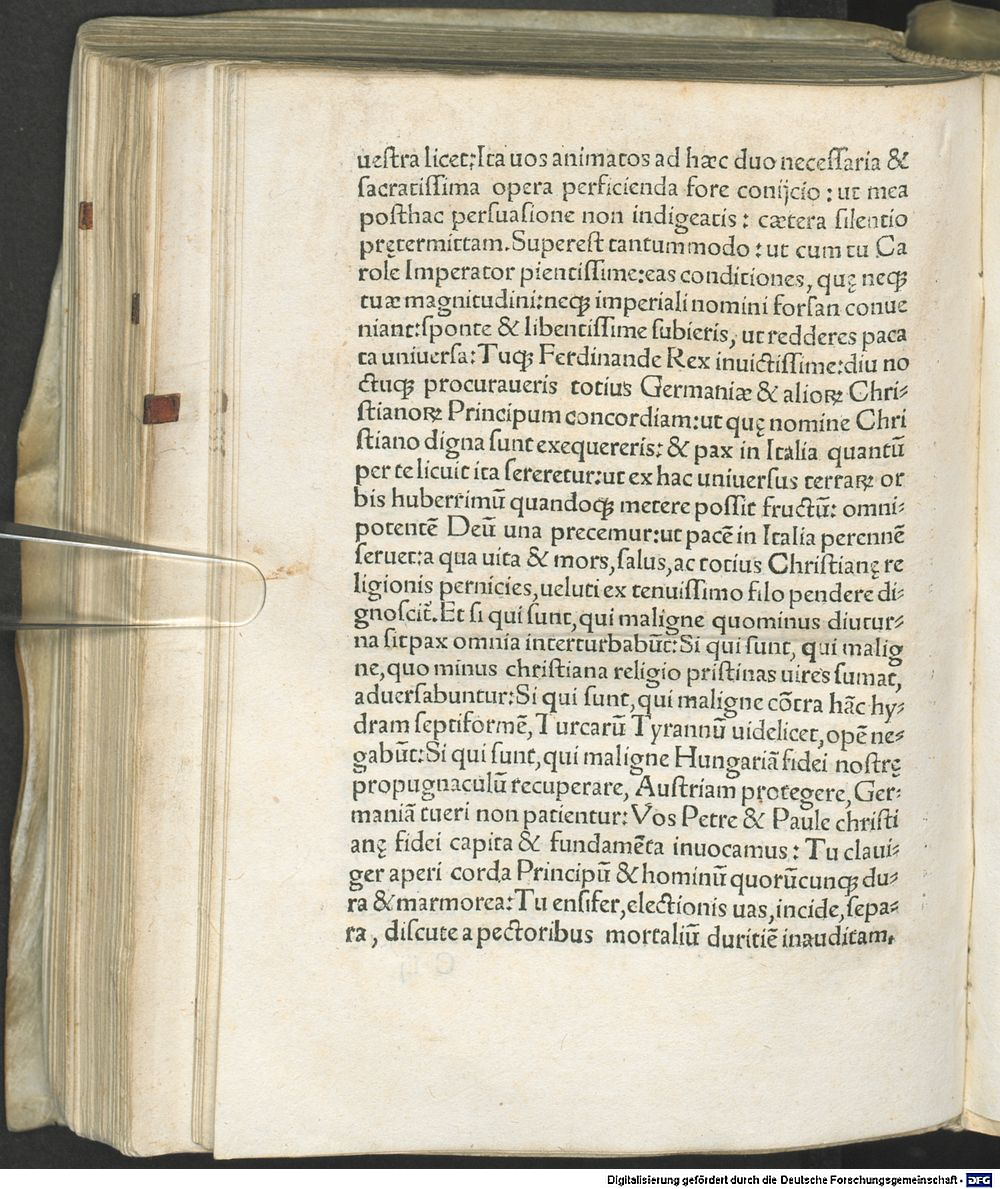 ueſtra licet;Ita uos animatos ad hæc duo neceſſaria &
ſacratiſſima opera perficienda fore conijcio : ut mea
poſthac perſuaſione non indigeatis : cætera ſilentio
prętermittam. Supereſt tantummodo : ut cum tu Ca
role Imperator pientiſſime:eas conditiones, quę neqꝫ
tuæ magnitudini:neqꝫ imperiali nomini forſan conue
niant:ſponte & libentiſſime ſubieris, ut redderes paca
ta uniuerſa: Tuqꝫ Ferdinande Rex inuictiſſime:diu no
ctuqꝫ procuraueris totius Germaniæ & alioꝝ Chri⸗
ſtianoꝝ Principum concordiam:ut quę nomine Chri
ſtiano digna ſunt exequereris: & pax in Italia quantū
per te licuit ita ſereretur:ut ex hac uniuerſus terraꝝ or
bis huberrimū quandoqꝫ metere poſſit fructū: omni⸗
potentē Deū una precemur:ut pacē in Italia perennē
ſeruet:a qua uita & mors,ſalus,ac totius Chriſtianę re
ligionis pernicies,ueluti ex tenuiſſimo filo pendere di⸗
gnoſcit̃. Et ſi qui ſunt,qui maligne quominus diutur⸗
na ſit pax omnia interturbabūt:Si qui ſunt, qui malig
ne,quo minus chriſtiana religio priſtinas uires ſumat,
aduerſabuntur:Si qui ſunt,qui maligne cōtra hāc hy⸗
dram ſeptiformē,Turcarū Tyrannū uidelicet,opē ne⸗
gabūt:Si qui ſunt,qui maligne Hungariā fidei noſtrę
propugnaculū recuperare, Auſtriam protegere,Ger⸗
maniā tueri non patientur: Vos Petre & Paule chriſti
anę fidei capita & fundamēta inuocamus : Tu claui⸗
ger aperi corda Principū & hominū quorūcunqꝫ du⸗
ra & marmorea:Tu enſifer,electionis uas,incide,ſepa⸗
ra , diſcute a pectoribus mortaliū duritiē inauditam.
Digitalisierung gefördert durch die Deutsche Forschungsgemeinschaft - DFG